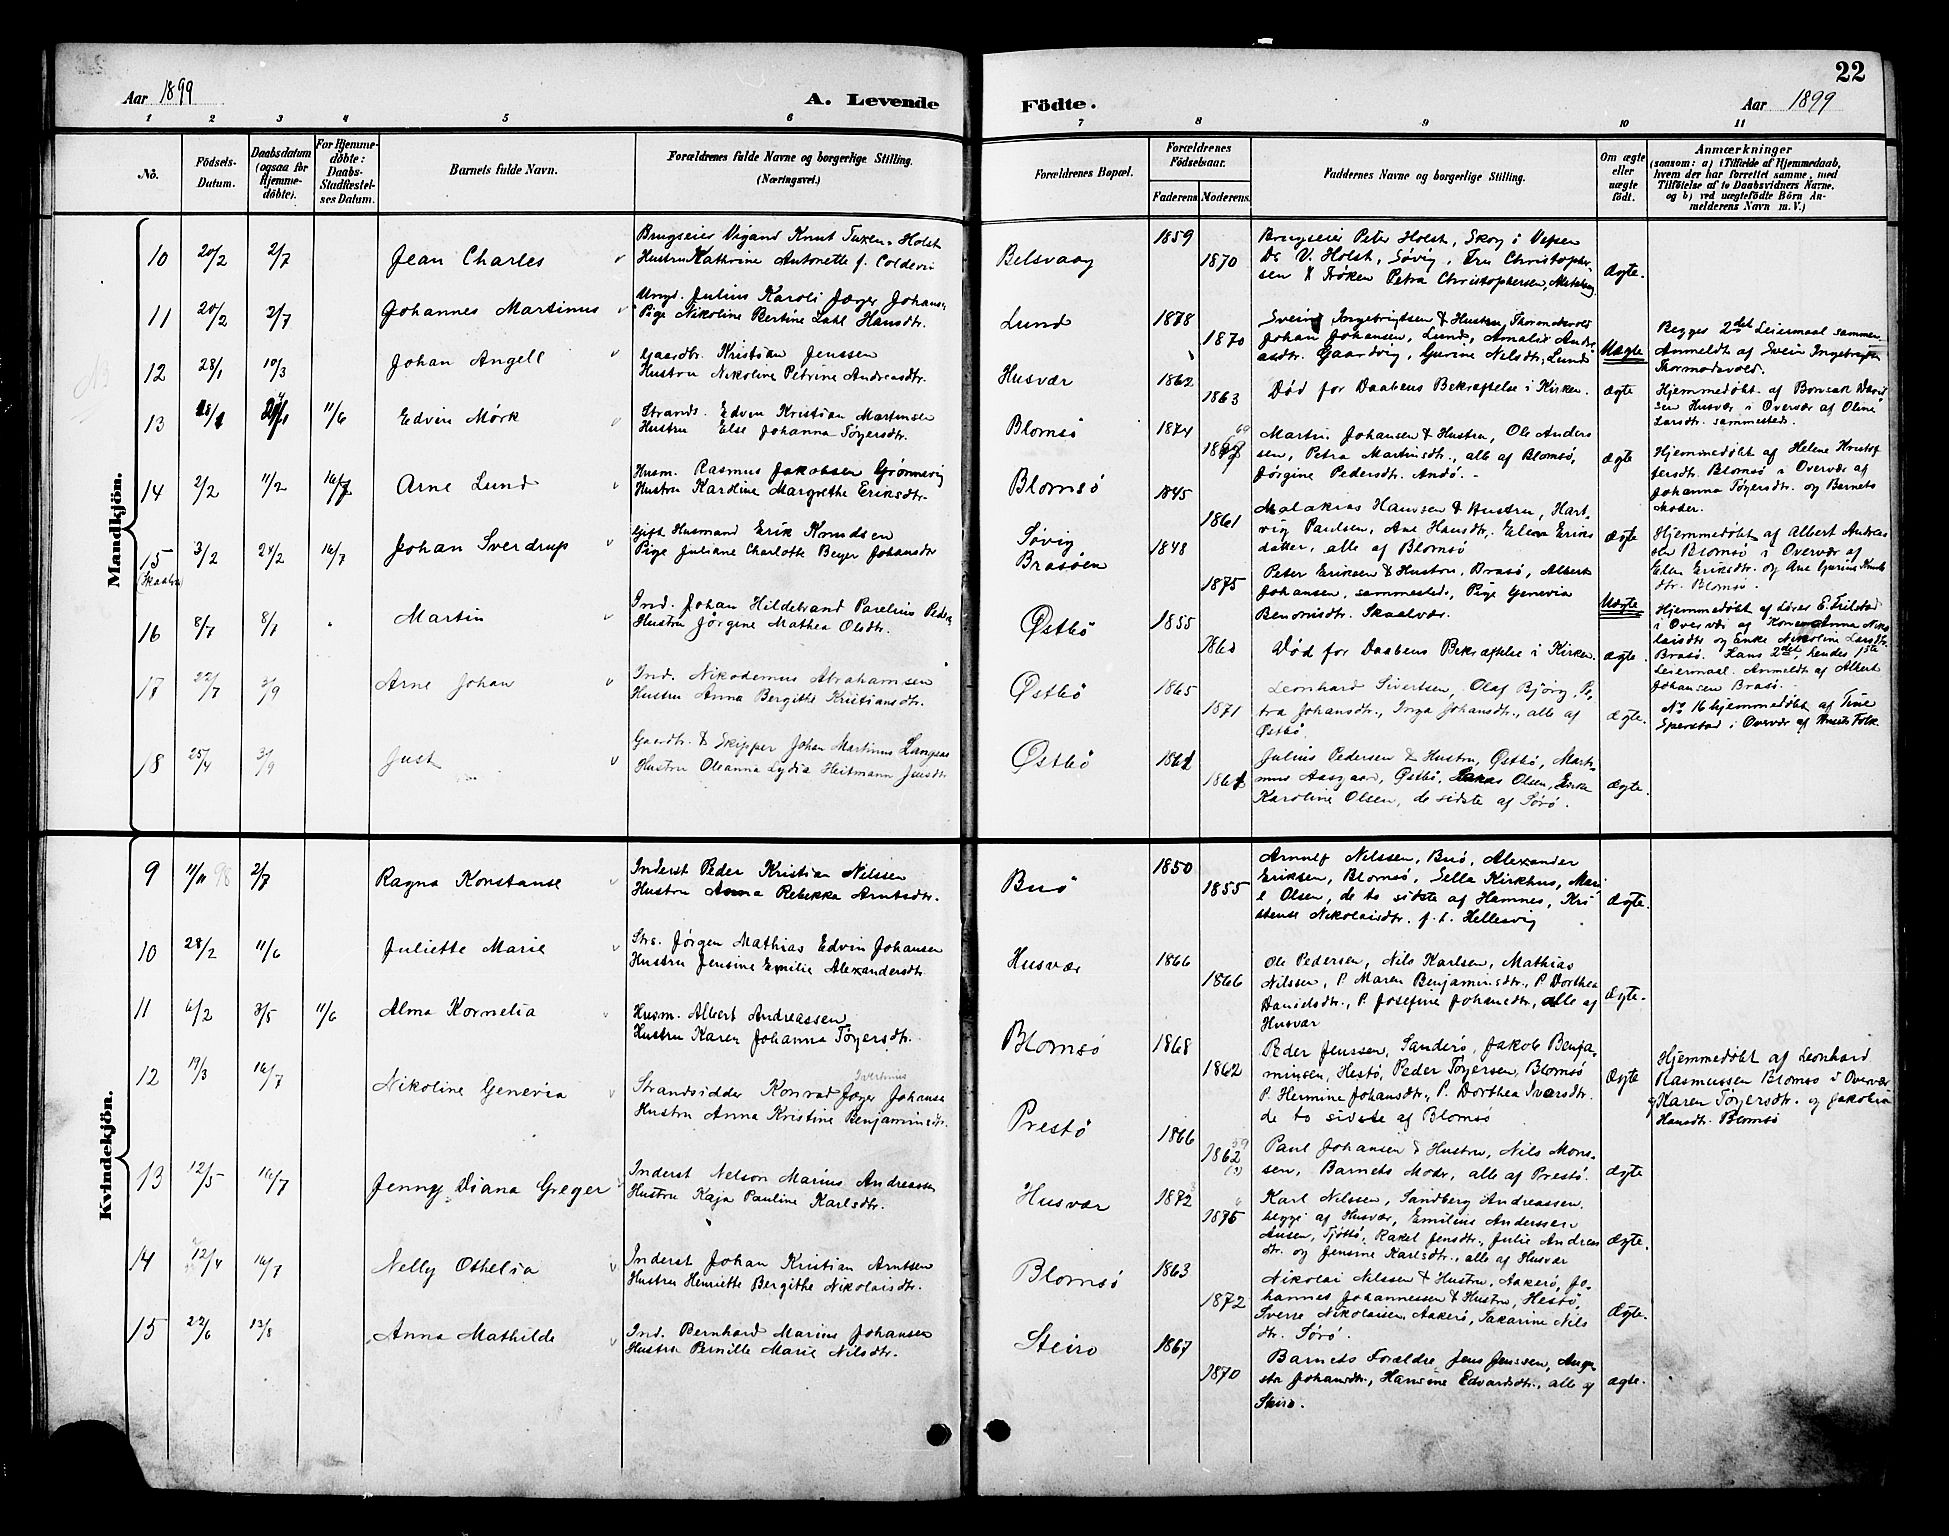 22
Aar 1899
A. Levende
Födte.
Aar 1899
1 2 3 4 5 6 7 8 9 10 11
No.
Födsels-
Datum.
Daabsdatum
(ogsaa for
Hjemme-
döbte).
For Hjemme-
döbte:
Daabs-
Stadfæstel-
ses Datum.
Barnets fulde Navn.
Forældrenes fulde Navne og borgerlige Stilling.
(Næringsvei.)
Forældrenes Bopæl.
Forældrenes
Födselsaar.
Faderens
Moderens.
Faddernes Navne og borgerlige Stilling.
Om ægte
eller
uægte
födt.
Anmærkninger
(saasom: a) i Tilfælde af Hjemmedaab,
hvem der har forrettet samme, med
Tilföielse af to Daabsvidners Navne.
og b) ved uægtefödte Börn An-
melderens Navn m. V.)
Mandkjön.
10 20/2 2/7 Jean Charles
Brugseier Vigand Knut Tuxen Holst
Hustru Kathrine Antonette f. Coldevin
Belsvaag 1859 1870
Brugseier Peter Holst, Skog i Vefsen
Dr V. Holst, Søvig, Fru Christopher-
sen & Frøken Petra Christophersen,
Ægte.
11 20/2 2/7 Johannes Martinus
Ungk. Julius Karoli Jæger Johans.
Pige Nikoline Bertine Dahl Hansdtr.
Lund 1878 1870
Svein Ingebrigtsen & Hustru, Thormodsvold
Johan Johansen, Lund, Amalie Andre
asdtr. Gaardvig, Gurine Nilsdtr, Lund
Uægte
Begges 2det Leiermaal sammen
Anmeldt af Svein Ingebrigtsen
Thormodsvold.
12 28/1 10/3 Johan Angell
Gaardbr. Kristian Jenssen
Hustru Nikoline Petrine Andreasdtr.
Husvær 1862 1863
Død for Daabens Bekræftelse i Kirken.
ægte
Hjemmedøbt af Bonsak David
sen Husvær i Overvær af Oline
Larsdtr. sammesteds.
13 11/6 Edvin Mørk
Strands. Edvin Kristian Martinsen
Hustru Else Johanna Tøgersdtr.
Blomsø 1874
Martin Johansen & Hustru, Ole Anders
sen, Petra Martinsdtr., alle af Blomsø,
Jørgine Pedersdtr. Andø.
ægte
Hjemmedøbt af Helene Kristof
fersdtr. Blomsø i Overvær af
Johanna Tøgersdtr. og Barnets
Moder.
14 2/2 11/2 16/7 Arne Lund
Husm. Rasmus Jakobsen Grønnevig
Hustru Karoline Margrethe Eriksdtr.
Blomsø 1845 1861
Malakias Hanssen & Hustru, Hart-
vig Paulsen, Ane Hansdtr. Elen Eriks
datter, alle af Blomsø
ægte
Hjemmedøbt af Albert Andreas
sen Blomsø i Overvær af
Elen Eriksdtr. og Ane Gurine Knuds
dtr. Blomsø.
15 3/2 24/2 16/7 Johan Sverdrup
Gift Husmand Erik Knudsen
Pige Juliane Charlotte Beyer Johansdtr
Søvig
Brasøen 1848 1875
Peter Eriksen & Hustru, Brasø, Albert
Johansen, sammesteds, Pige Genevia
Benonisdtr. Skaalvær.
Uægte
Hjemmedøbt af Lærer E. Filstad
i Overvær af Konen Anna Niko
laisdtr og Enke Nikoline Larsdtr.
Brasø. Hans 2det, hendes 1ste
Leiermaal. Anmeldt af Albert
Johansen Brasø.
16 8/7 8/7 Martin
Ind. Johan Hildebrand Parelius Peders
Hustru Jørgine Mathea Olsdtr.
Østbø 1855
Død for Daabens Bekræftelse i Kirken.
ægte.
No 16 hjemmedøbt af Tine
Sperstad i Overvær af Husets Folk
17 22/7 3/9 Arne Johan
Ind. Nikodemus Abrahamsen
Hustru Anna Bergithe Kristiansdtr.
Østbø 1865 1871
Leonhard Sivertsen, Olaf Bjørg, Pe-
tra Johansdtr., Inga Johansdtr., alle af
Østbø.
ægte.
18 25/4 3/9 Just
Gaardbr. & Skipper Johan Martinus
Hustru Oleanna Lydia Heitmann Jensdtr
Østbø 1861
Julius Pedersen & Hustru, Østbø, Marti-
nus Aasgaar, Østbø, Olsen,
Karoline Olsen, de sidste af Sørø.
Ægte.
Kvindekjön.
9 11/11 98 2/7 Ragna Konstanse
Inderst Peder Kristian Nilssen
Hustru Anna Rebekka Arntsdtr.
Buø 1850 1855
Arnulf Nilssen, Buø, Alexander
Eriksen, Blomsø, Sella Kirkhus, Mari
e Olsen, de to sidste af Hamnes, Kri
stense Nikolaisdtr. f. t. Hellesvig
Ægte.
10 28/2 11/6 Juliette Marie
Strs. Jørgen Mathias Edvin Johansen
Hustru Jensine Emilie Alexandersdtr.
Husvær 1866 1866
Ole Pedersen, Nils Karlsen, Mathias
Nilssen, P. Maren Benjaminsdtr., P. Dorthea
Danielsdtr., P. Josefine Johansdtr., alle af
Husvær
Ægte.
11 6/2 3/5 11/6 Alma Kornelia
Husm. Albert Andreassen
Hustru Karen Johanna Tøgersdtr.
Blomsø 1868 1862
Peder Jenssen, Sanderø, Jakob Benja-
minsen, Hestø, Peder Tøgersen, Blomsø
P. Hermine Johansdtr., P. Dorthea Iversdtr.
de to sidste af Blomsø
Ægte
Hjemmedøbt af Leonhard
Rasmussen Blomsø i Overvær
af Karen Tøgersdtr. og Jakobia
Hansdtr. Blomsø
12 19/3 16/7 Nikoline Genevia
Strandsidder Konrad Jæger Johansen
Hustru Anna Kristine Benjaminsdtr.
Prestø 1866 1862
Paul Johansen & Hustru, Nils Mons-
sen, Barnets Moder, alle af Prestø.
ægte
13 12/5 16/7 Jenny Diana Greger
Inderst Nelson Marius Andreassen
Hustru Kaja Pauline Karlsdtr.
Husvær 1872 1875
Karl Nilssen, Sandberg Andreassen,
begge af Husvær, Emilius Anderssen
Ausen, Tjøttø, Rakel Jensdtr., Julie Andreas
dtr. og Jensine Karlsdtr., alle af Husvær
ægte.
14 12/4 16/7 Nelly Othelia
Inderst Johan Kristian Arntsen
Hustru Henriette Bergithe Nikolaisdtr.
Blomsø 1863 1872
Nikolai Nilssen & Hustru, Aakerø, Jo-
hannes Johannessen & Hustru, Hestø,
Sverre Nikolaisen, Aakerø, Sakarine Nils
dtr. Sørø.
Ægte.
15 22/6 13/8 Anna Mathilde
Ind. Bernhard Marius Johansen
Hustru Pernille Marie Nilsdtr.
Steiro 1867 1870
Barnets Forældre, Jens Jenssen, Augu-
sta Johansdtr., Hansine Edvardsdtr., alle af
Steiro.
ægte.